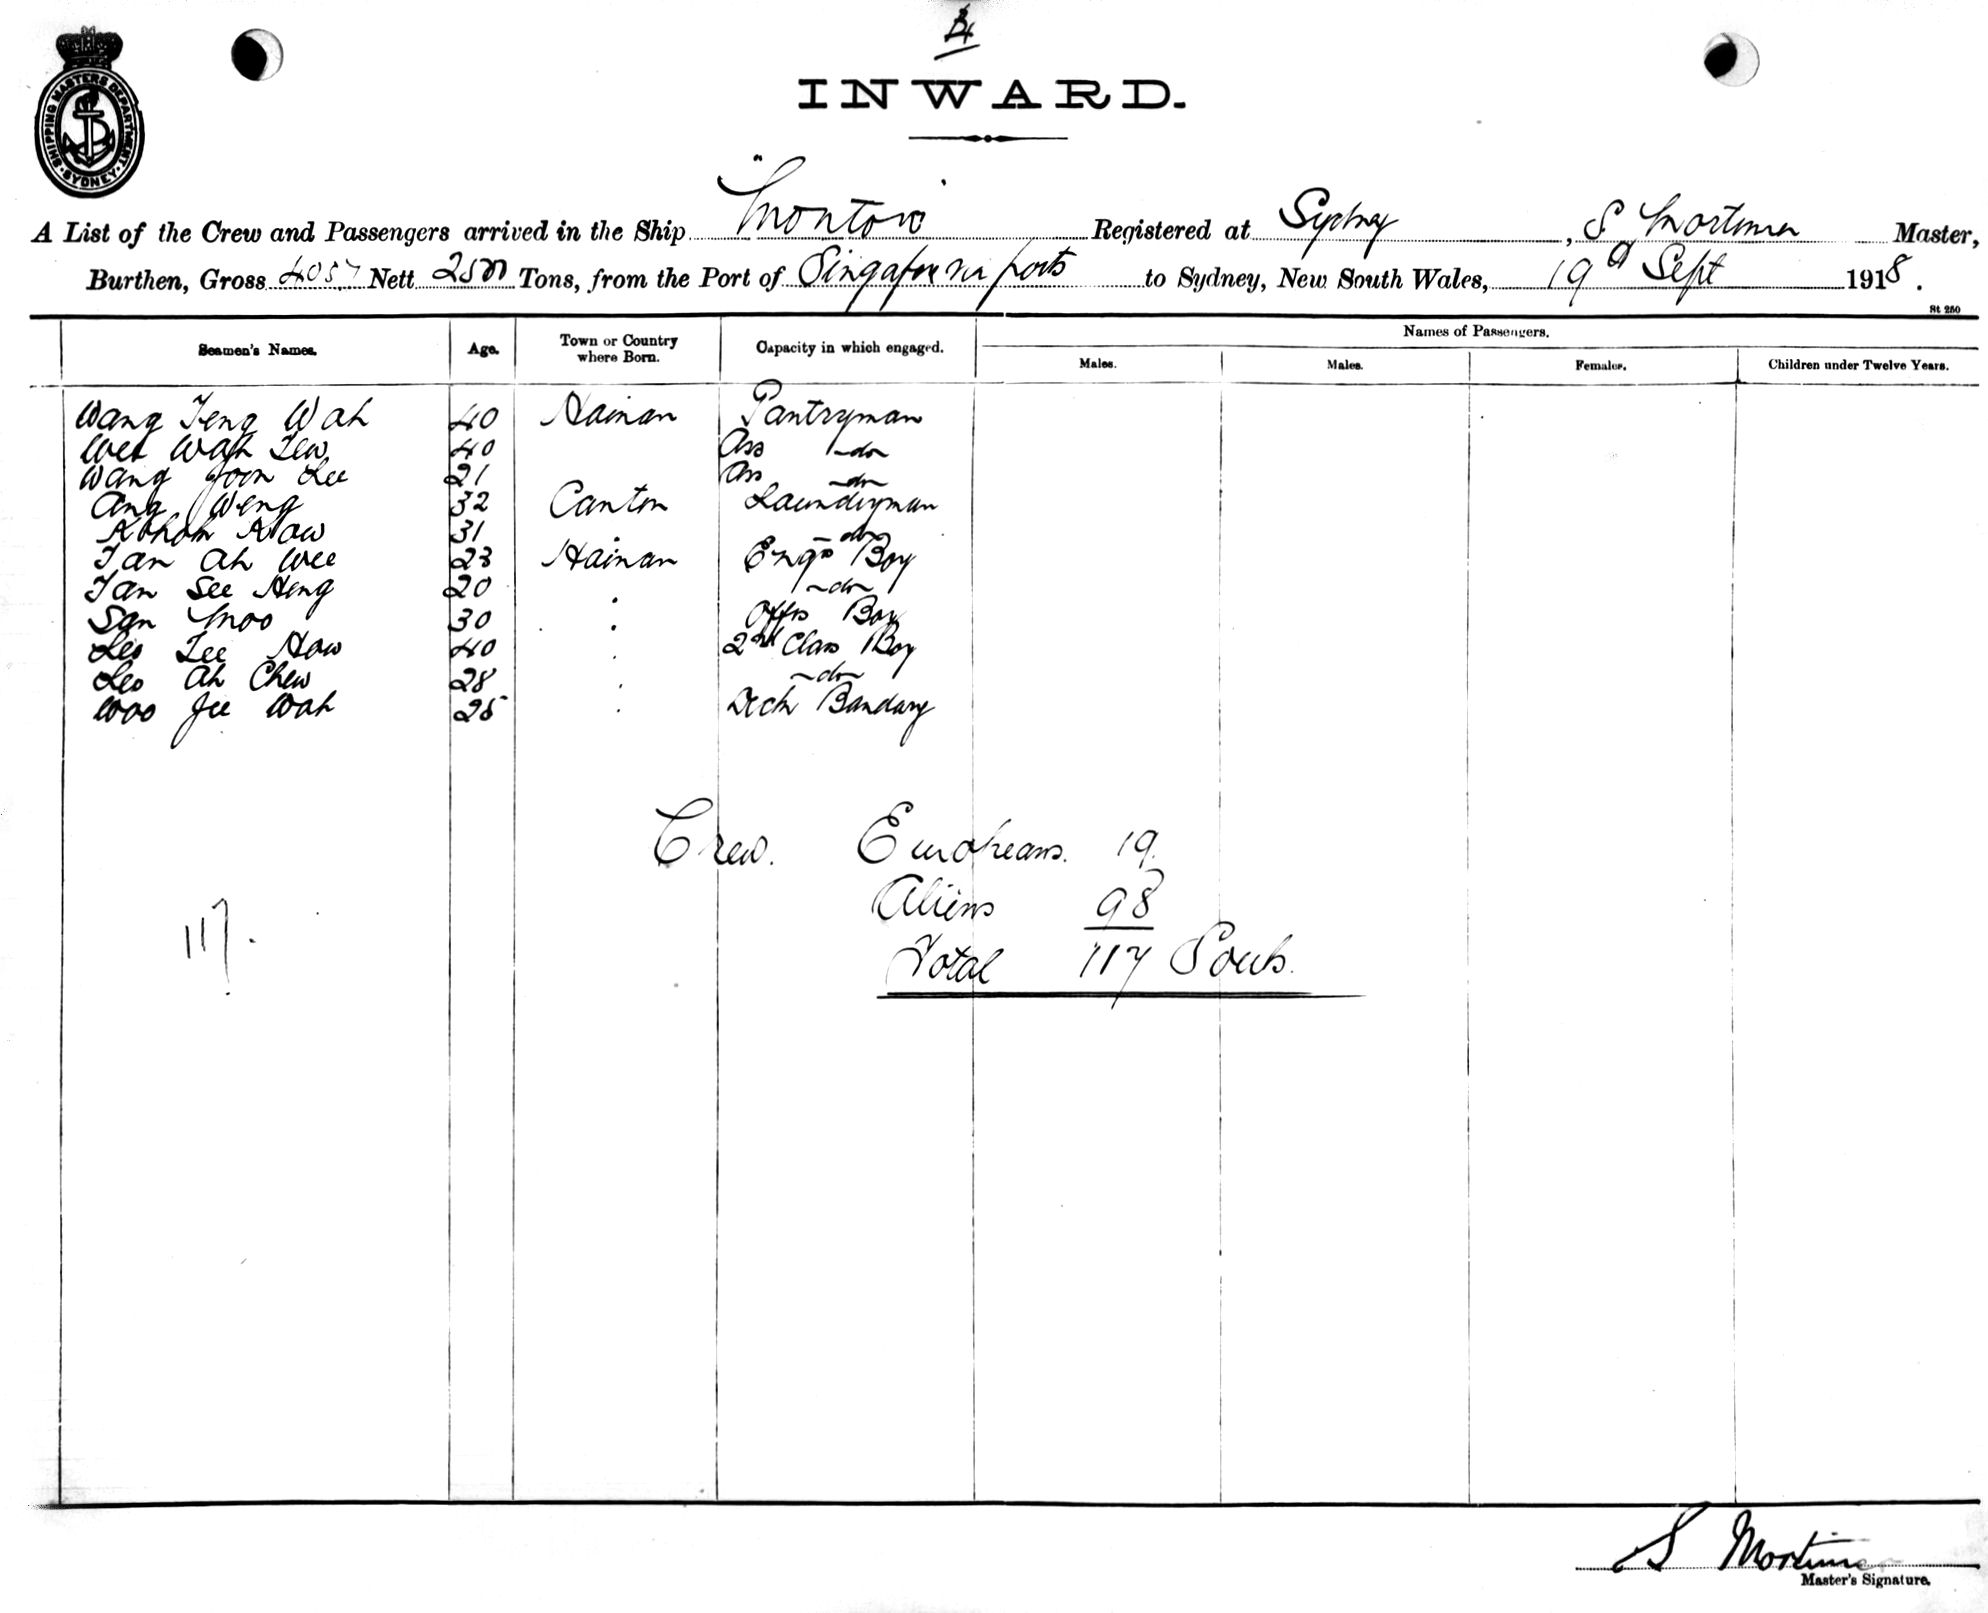 4
SHIPPING MASTERS DEPARTMENT
SYDNEY
INWARD.
A List of the Crew and Passengers arrived in the Ship "Montoro" Registered at Sydney, S Mortimer Master,
Burthen, Gross 4057 Nett 2500 Tons, from the Port of Singapore via ports to Sydney, New South Wales, 19th Sept 1918.
St 250
Seamen's Names. Age. Town or Country where Born. Capacity in which engaged. Names of Passengers.
Males. Males. Females. Children under Twelve Years.
Wang Teng Wah 40 Hainan Pantryman
Wee Wah Tew 40 Ass -do-
Wang Joon Lee 21 Ass -do-
Ang Weng 32 Canton Laundryman
Kow 31 " -do-
Tan Ah Wee 23 Hainan Engs Boy
Tan See Heng 20 " -do-
San Moo 30 " Offrs Boy
Leo Tee How 40 " 2nd Class Boy
Leo Ah Chew 28 " -do-
Woo Jee Wah 25 " Deck Bandary
Crew. Europeans. 19.
Aliens 98
117. Total 117 Souls.
S Mortimer
Master's Signature.